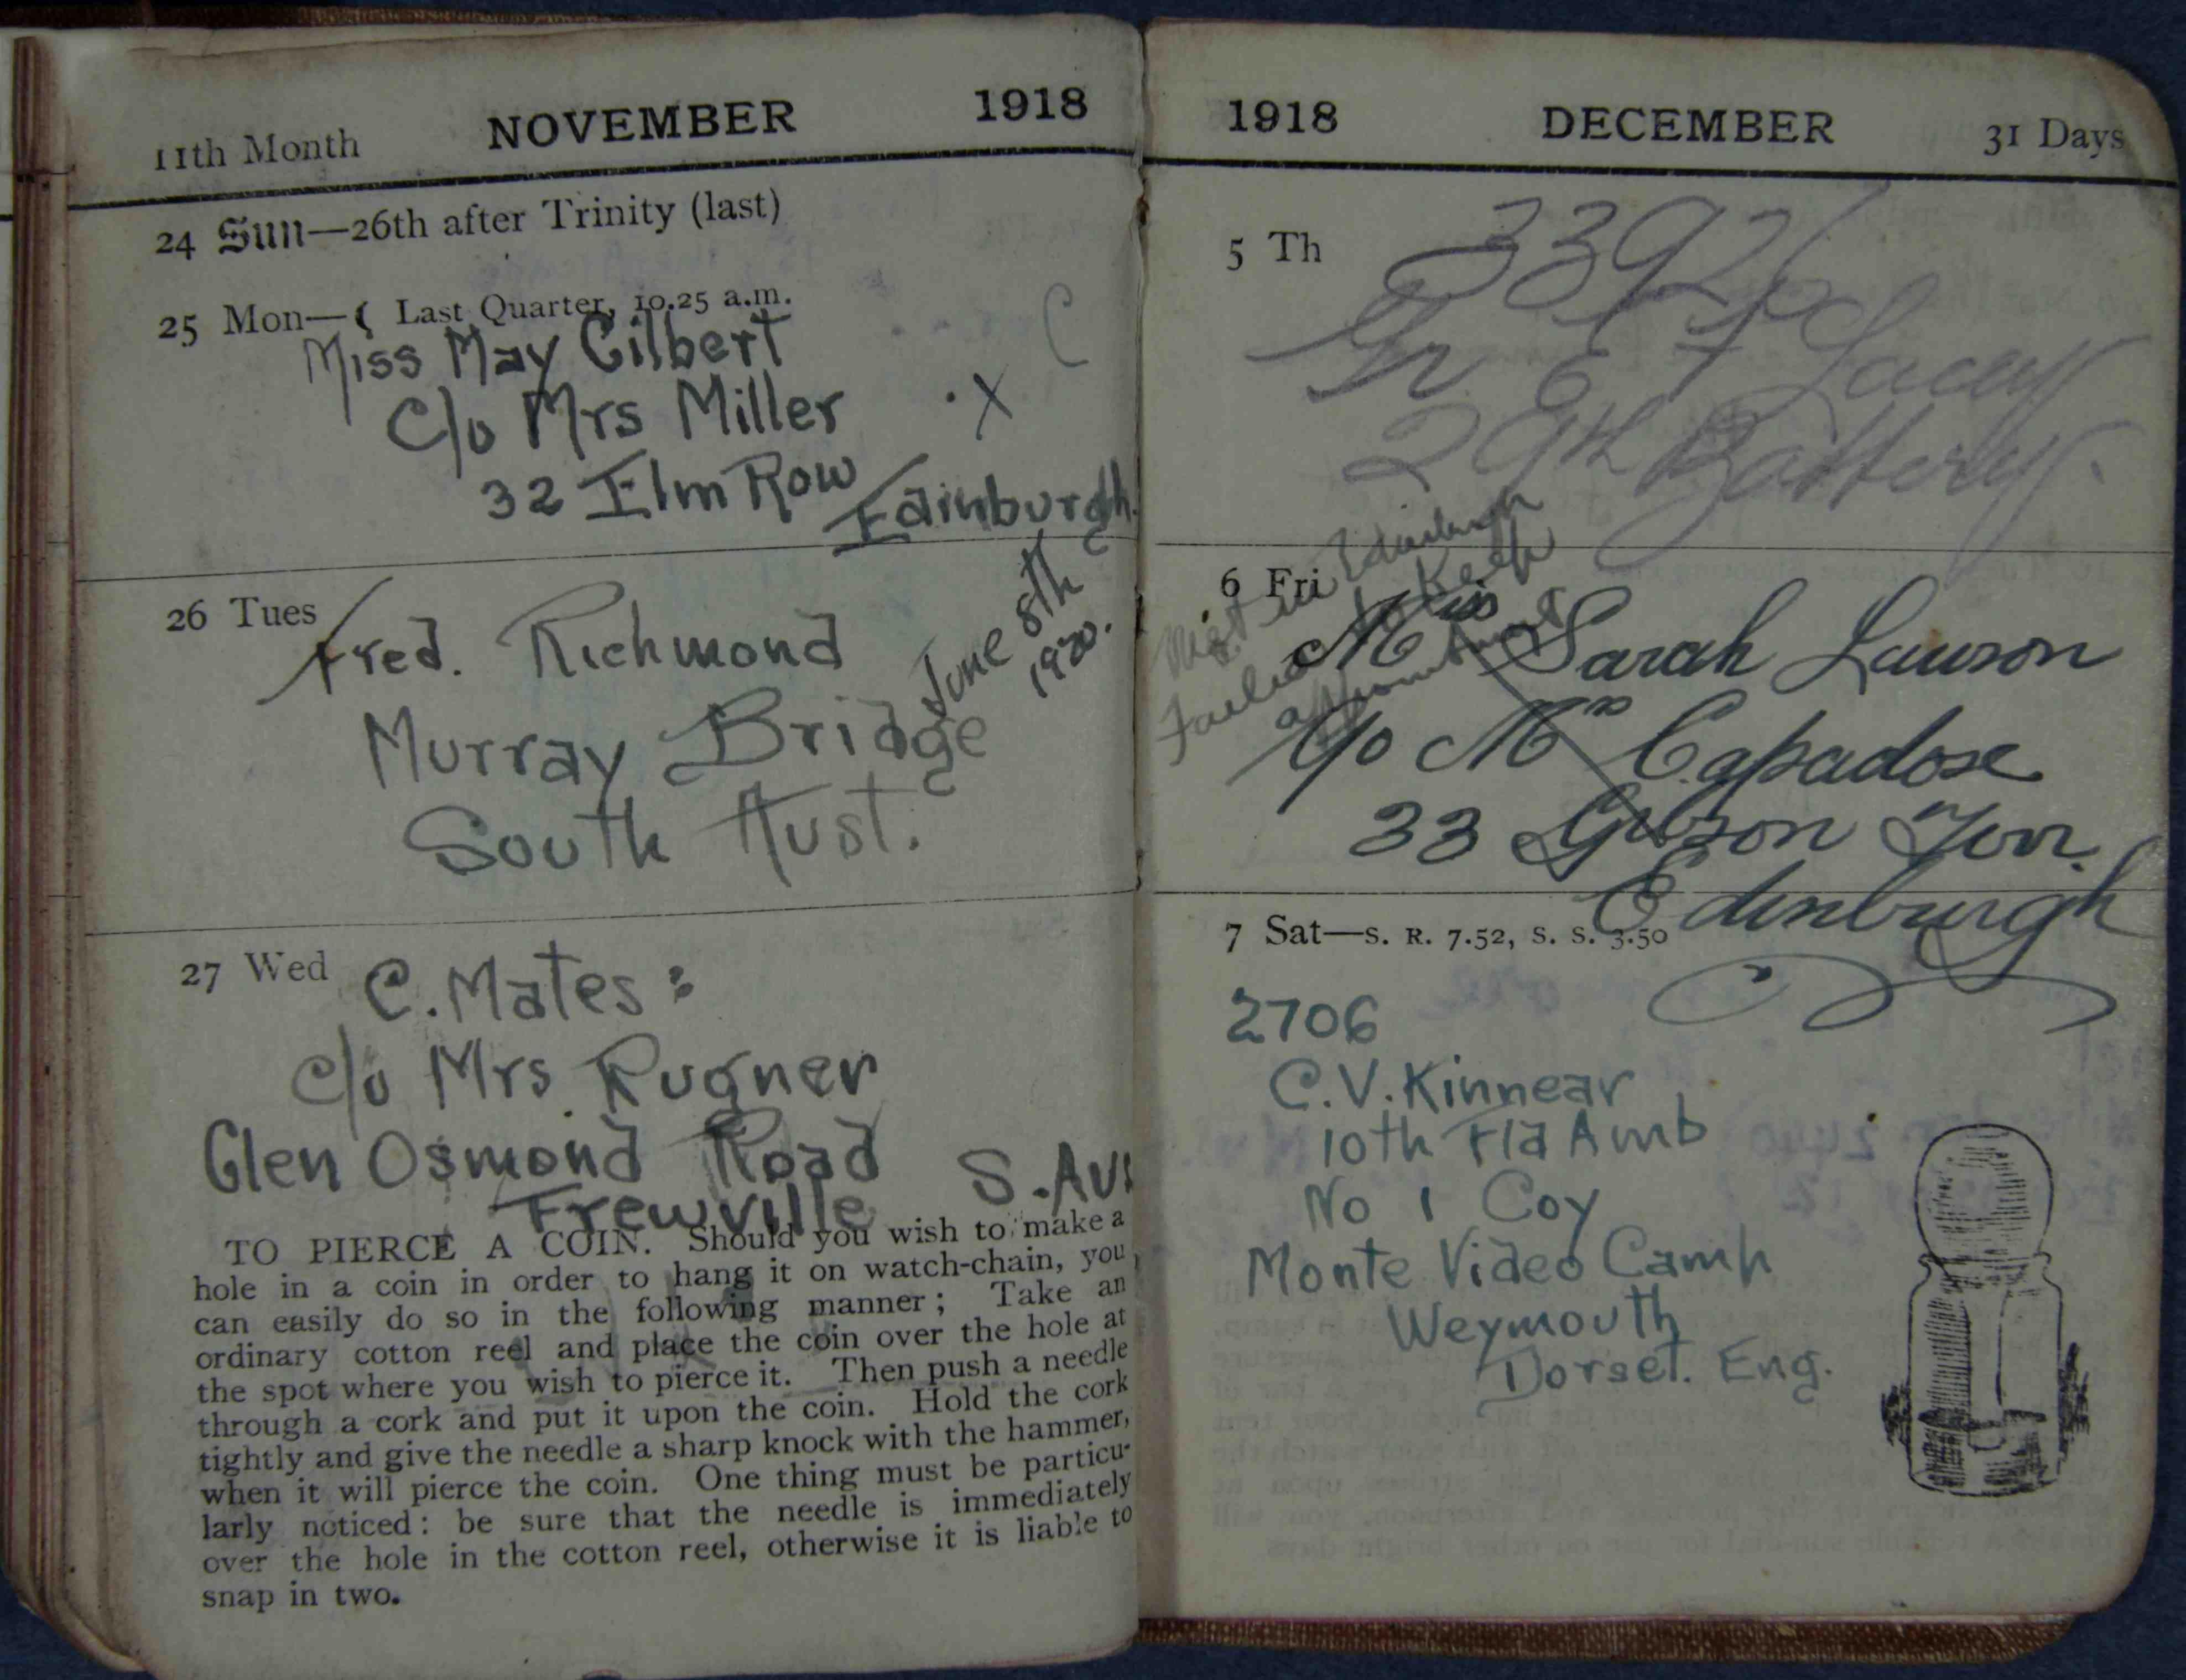 11th Month NOVEMBER 1918
24 Sun—26th after Trinity (last)
25 Mon—☾ Last Quarter, 10.25 a.m.
C
Miss May Gilbert
C/o Mrs Miller . X
32 Elm Row
Edinburgh.
26 Tues
Fred. Richmond
June 8th
1920.
Murray Bridge
South Aust.
27 Wed
C. Mates:
c/o Mrs. Rugner
Glen Osmond Road S. Aus
Frewville
TO PIERCE A COIN. Should you wish to make a
hole in a coin in order to hang it on watch-chain, you
can easily do so in the following manner; Take an
ordinary cotton reel and place the coin over the hole at
the spot where you wish to pierce it. Then push a needle
through a cork and put it upon the coin. Hold the cork
tightly and give the needle a sharp knock with the hammer,
when it will pierce the coin. One thing must be particu-
larly noticed: be sure that the needle is immediately
over the hole in the cotton reel, otherwise it is liable to
snap in two.
1918 DECEMBER 31 Days
5 Th
33926
Gr. E F Lacey
29th Battery.
6 Fri
Met in Edinburgh
Failed to keep
appointment
Miss Sarah Lawson
c/o Mrs Capadose
33 Gibson Terr.
Edinburgh
7 Sat—S. R. 7.52, S. S. 3.50
2706
C.V. Kinnear
10th Fld Amb
No 1 Coy
Monte Video Camp
Weymouth
Dorset. Eng.